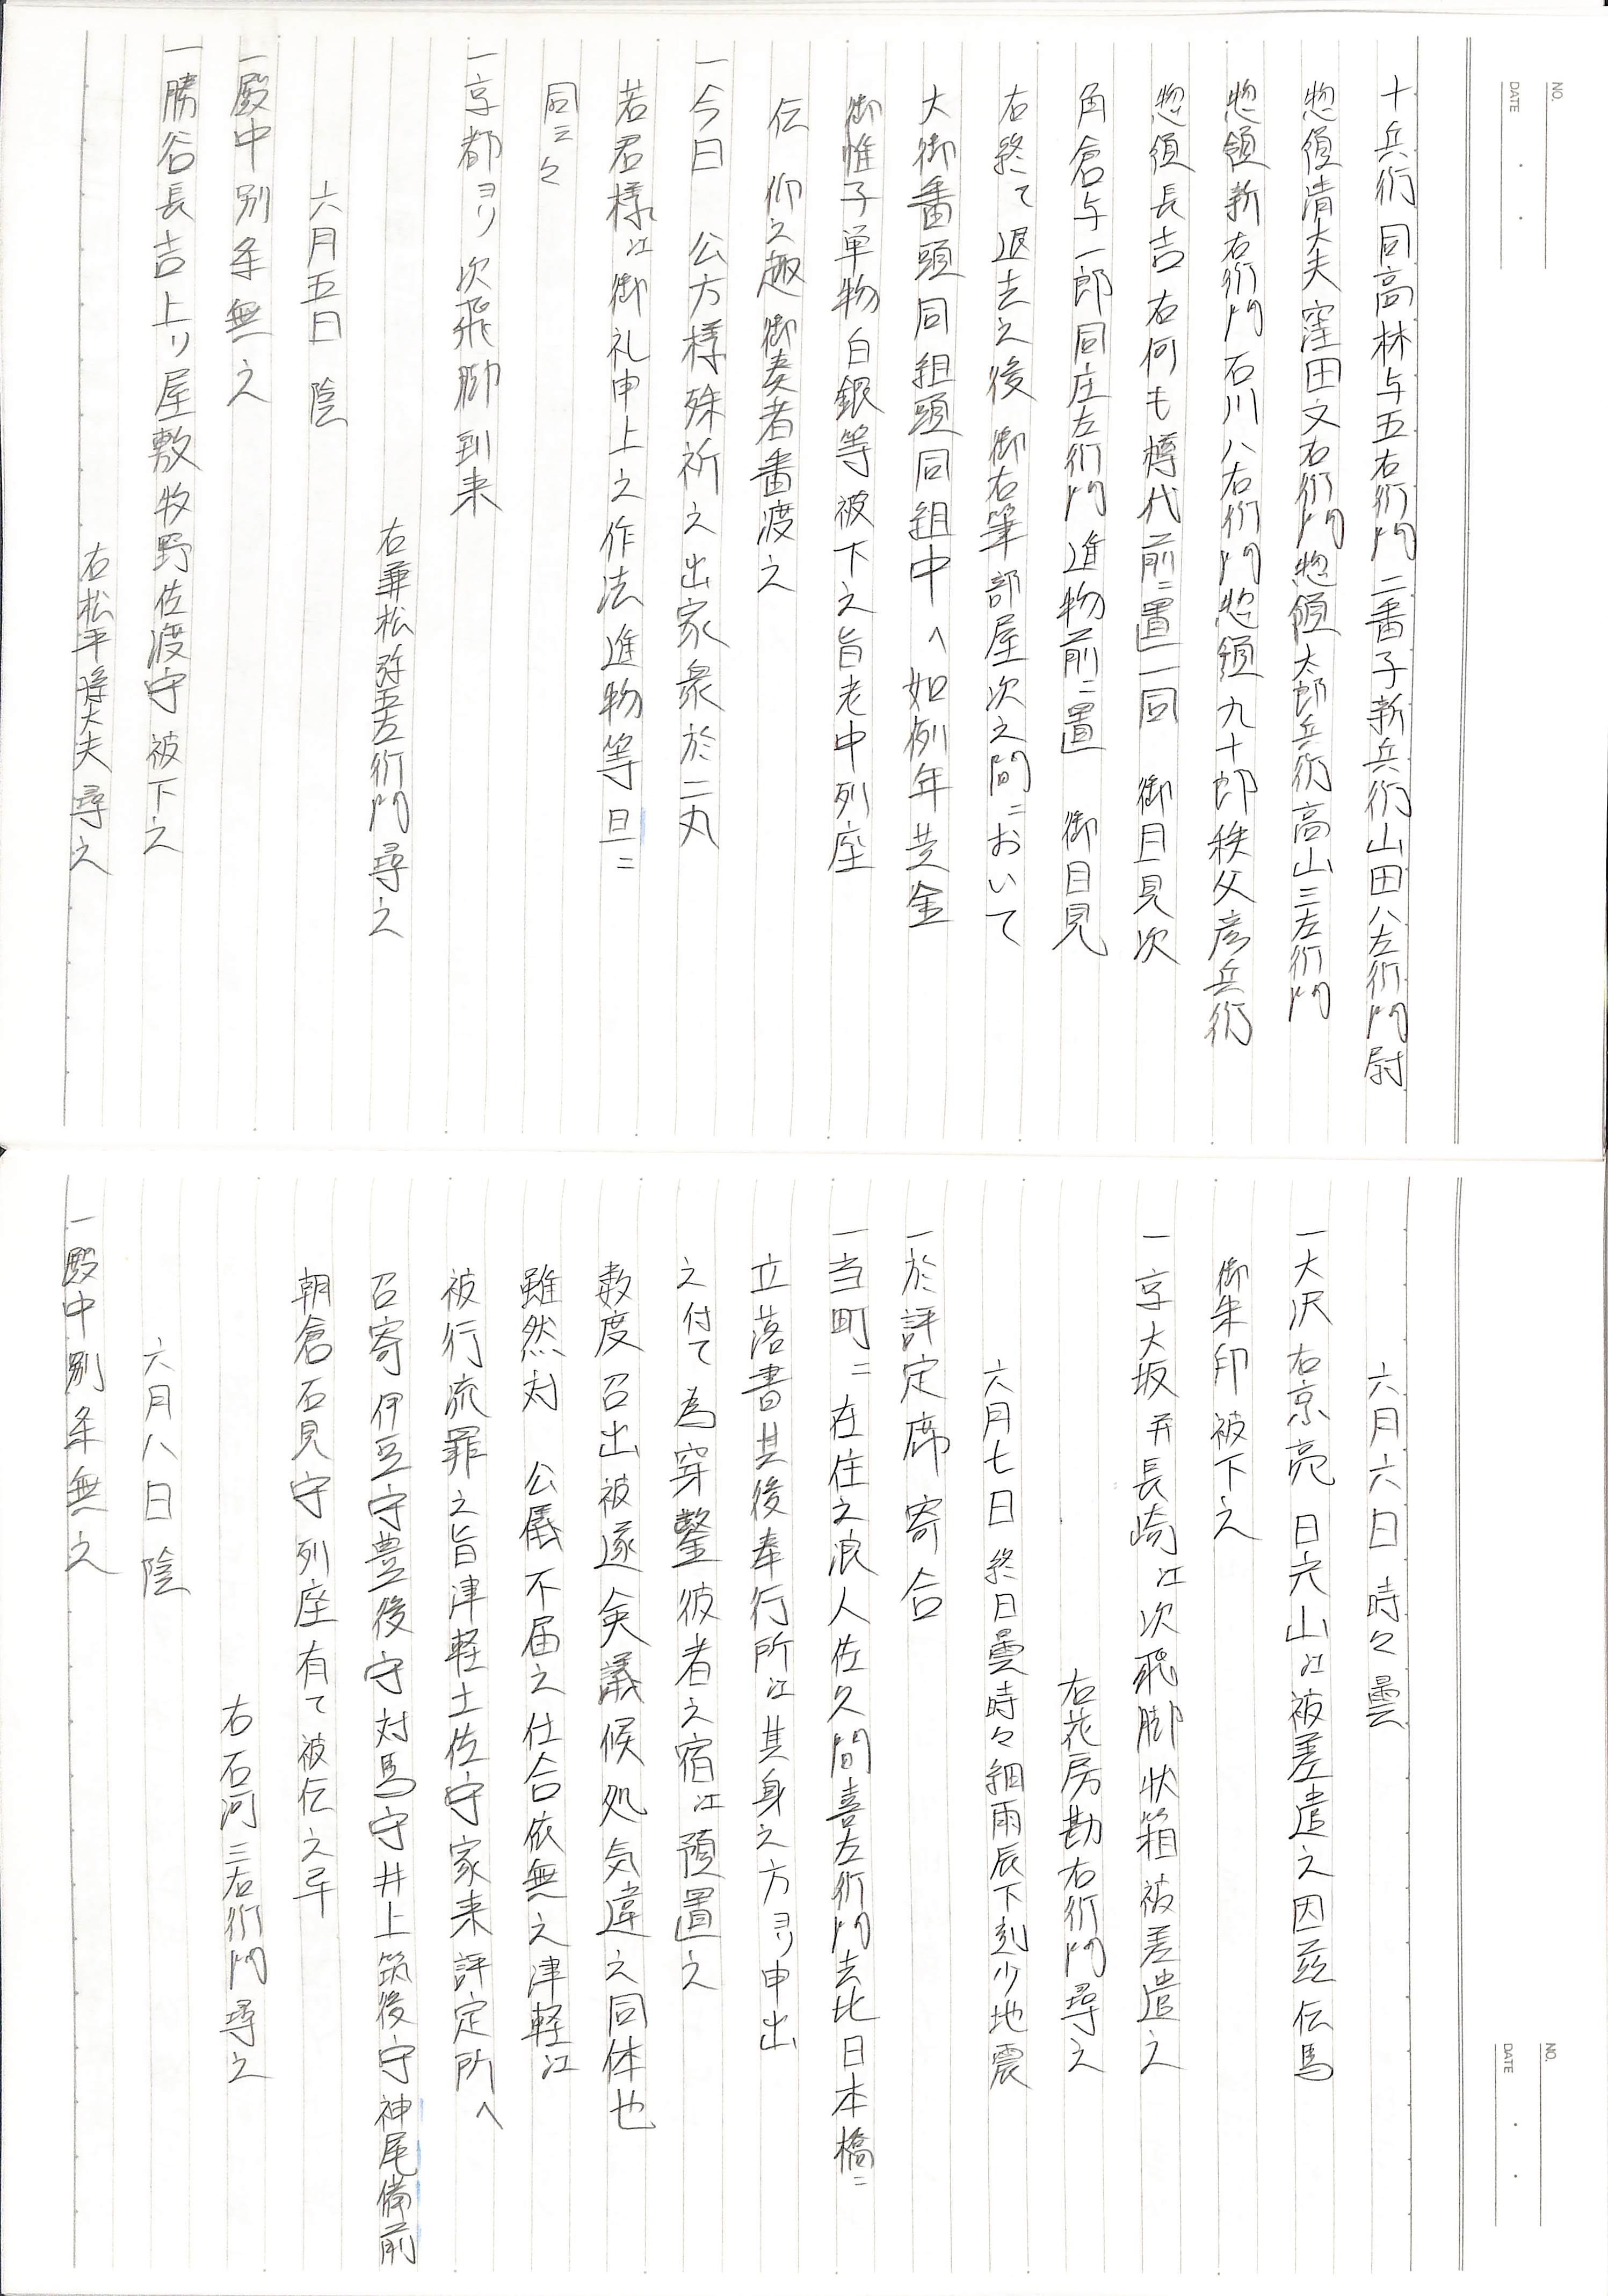 NO.
DATE
十兵衛 同高林与五右衛門 二番子新兵衛 山田八左衛門尉
惣領清大夫 窪田文右衛門 惣領太郎兵衛 高山三左衛門
惣領新右衛門 石川八右衛門 惣領九十郎 秩父彦兵衛
惣領長吉 右何も樽代前ニ置一同 御目見 次
角倉与一郎 同庄左衛門 進物前ニ置 御目見
右終て退去之後 御右筆部屋次之間ニおいて
大御番頭同組頭同組中へ如例年黄金
御帷子単物白銀等被下之旨老中列座
伝 仰之趣 御奏者番渡之
一今日 公方様殊祈之出家衆於二丸
若君様江御礼申上之作法進物等旦ニ
同ニ々
一京都ヨリ次飛脚到来
右兼松弥五左衛門尋之
六月五日 陰
一殿中別条無之
一勝谷長吉上リ屋敷牧野佐渡守被下之
右松平将大夫尋之
NO.
DATE
六月六日 時々曇
一大沢右京亮日光山江被差遣之因茲伝馬
御朱印被下之
一京大坂并長崎江次飛脚状箱被差遣之
右花房勘右衛門尋之
六月七日 終日曇時々細雨辰下刻少地震
一於評定席寄合
一当町ニ在住之浪人佐久間喜左衛門去比日本橋ニ
立落書其後奉行所江其身之方ヨリ申出
之付て為穿鑿彼者之宿江預置之
数度召出被遂僉議候処気違之同体也
雖然対 公儀不届之仕合依無之津軽江
被行流罪之旨津軽土佐守家来評定所へ
召寄伊豆守豊後守対馬守井上筑後守神尾備前
朝倉石見守列座有て被伝之年
右石河三右衛門尋之
六月八日 陰
一殿中別条無之